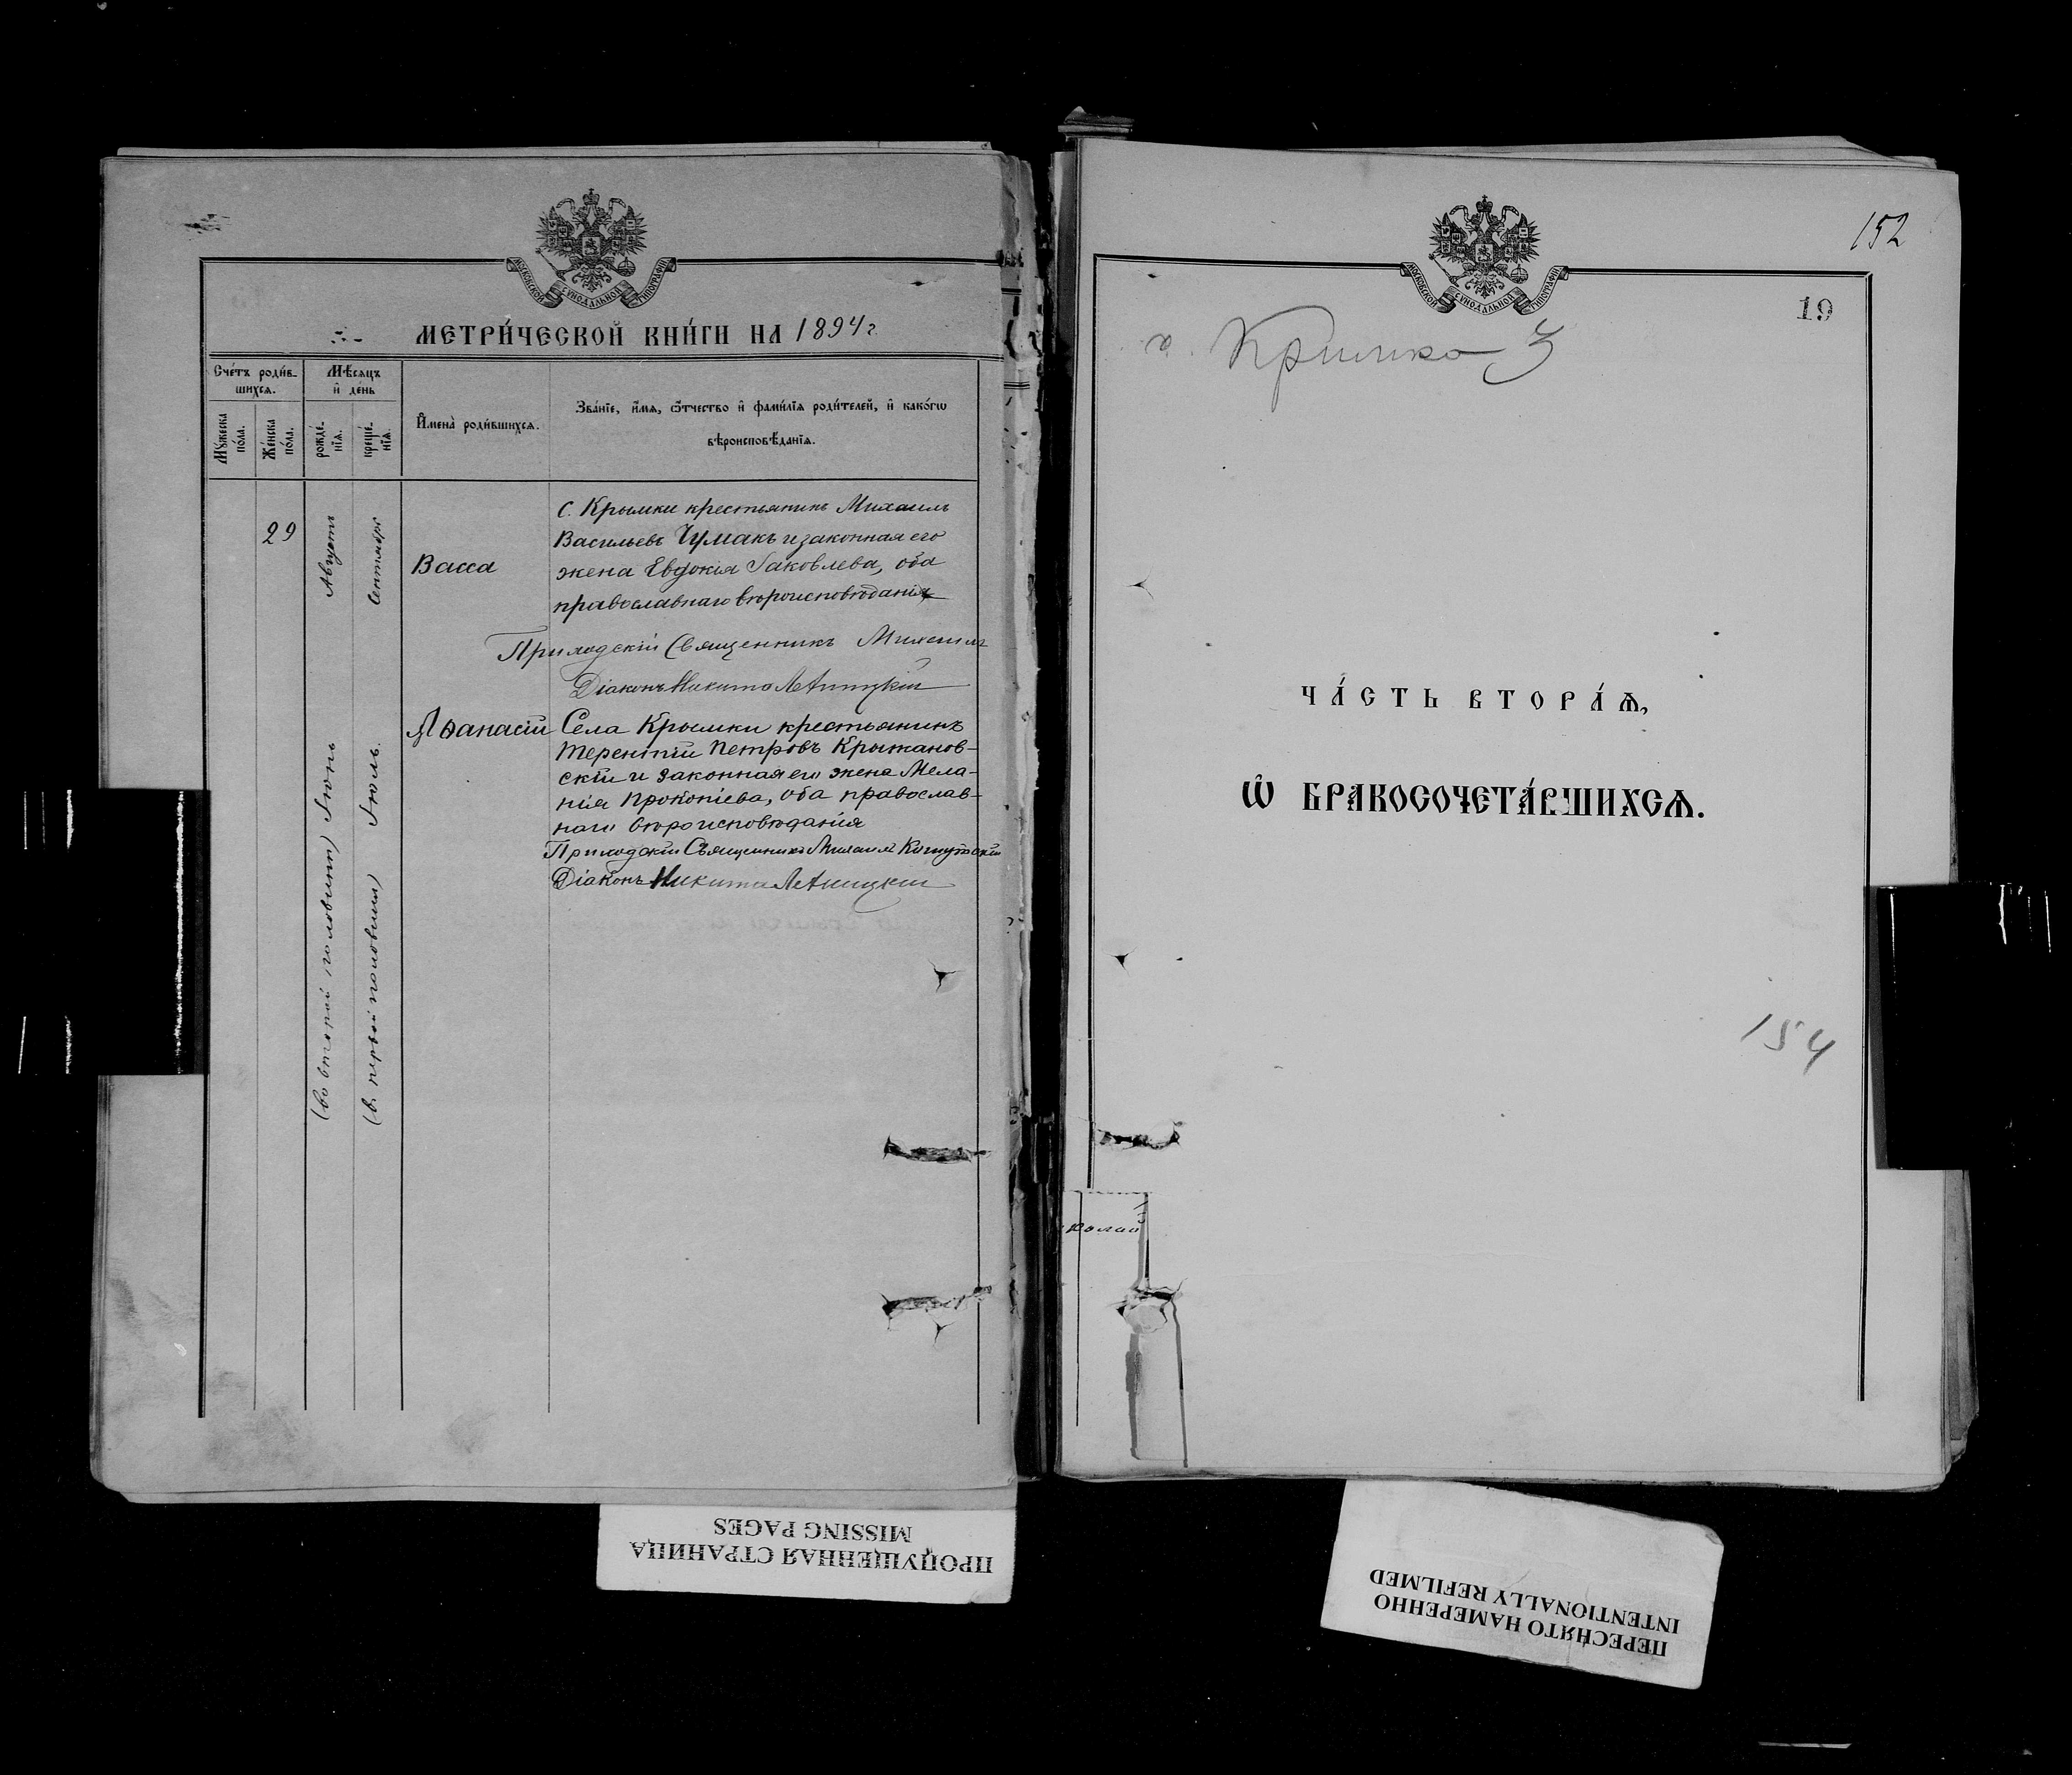 МОСКОВСКОЙ СѴНОДАЛЬНОЙ ТИПОГРАФІИ
МЕТРИ́ЧЕСКОЙ КНИ́ГИ НА 1894 г.
Сче́тъ роди́в-
шихсѧ.
Мѣ́сѧцъ
и҆ де́нь
Мꙋ́жеска
по́ла.
Же́нска
по́ла.
рожде́-
нїѧ.
креще́-
нїѧ.
И҆мена̀ роди́вшихсѧ.
Зва́нїе, и҆́мѧ, ѻ҆́тчество и҆ фами́лїѧ роди́телей, и҆ како́гѡ
вѣроисповѣ́данїѧ.
29
Августъ
Сентябрь
Васса
С. Крымки крестьянинъ Михаилъ
Васильевъ Чумакъ и законная его
жена Евдокія Іаковлева, оба
православнаго вѣроисповѣданія
Приходскій Священникъ Михаилъ
Діаконъ Никита
(во второй половинѣ) Іюнь
(въ первой половинѣ) Іюль.
Аѳанасій
Села Крымки крестьянинъ
Терентій Петровъ Крыжанов-
скій и законная его жена Мела-
нія Прокопіева, оба православ-
наго вѣроисповѣданія
Приходскій Священникъ Михаилъ
Діаконъ Никита
152
МОСКОВСКОЙ СѴНОДАЛЬНОЙ ТИПОГРАФІИ
19
Кримка
ЧА́СТЬ ВТОРА́Ѧ,
Ѡ҆ БРАКОСОЧЕТА́ВШИХСѦ.
154
колай
ПРОПУЩЕННАЯ СТРАНИЦА
MISSING PAGES
ПЕРЕСНЯТО НАМЕРЕННО
INTENTIONALLY REFILMED